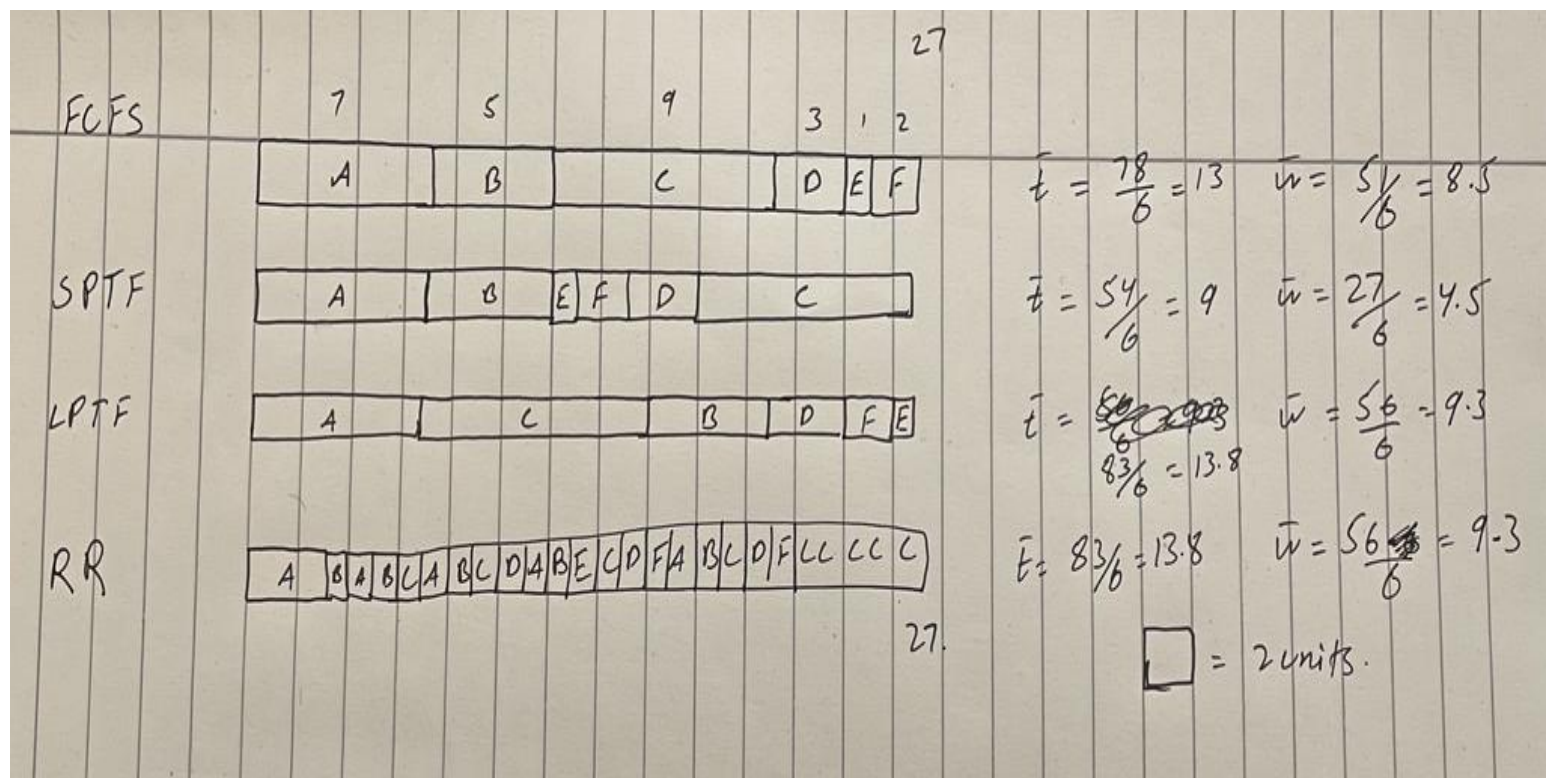 27
FCFS 7 5 9 3 1 2
A B C D E F t̄ = 78/6 = 13 w̄ = 51/6 = 8.5
SPTF A B E F D C t̄ = 54/6 = 9 w̄ = 27/6 = 4.5
LPTF A C B D F E t̄ = w̄ = 56/6 = 9.3
83/6 = 13.8
RR A B A B C A B C D A B E C D F A B C D F C C C C C t̄ = 83/6 = 13.8 w̄ = 56/6 = 9.3
27.
= 2 units.